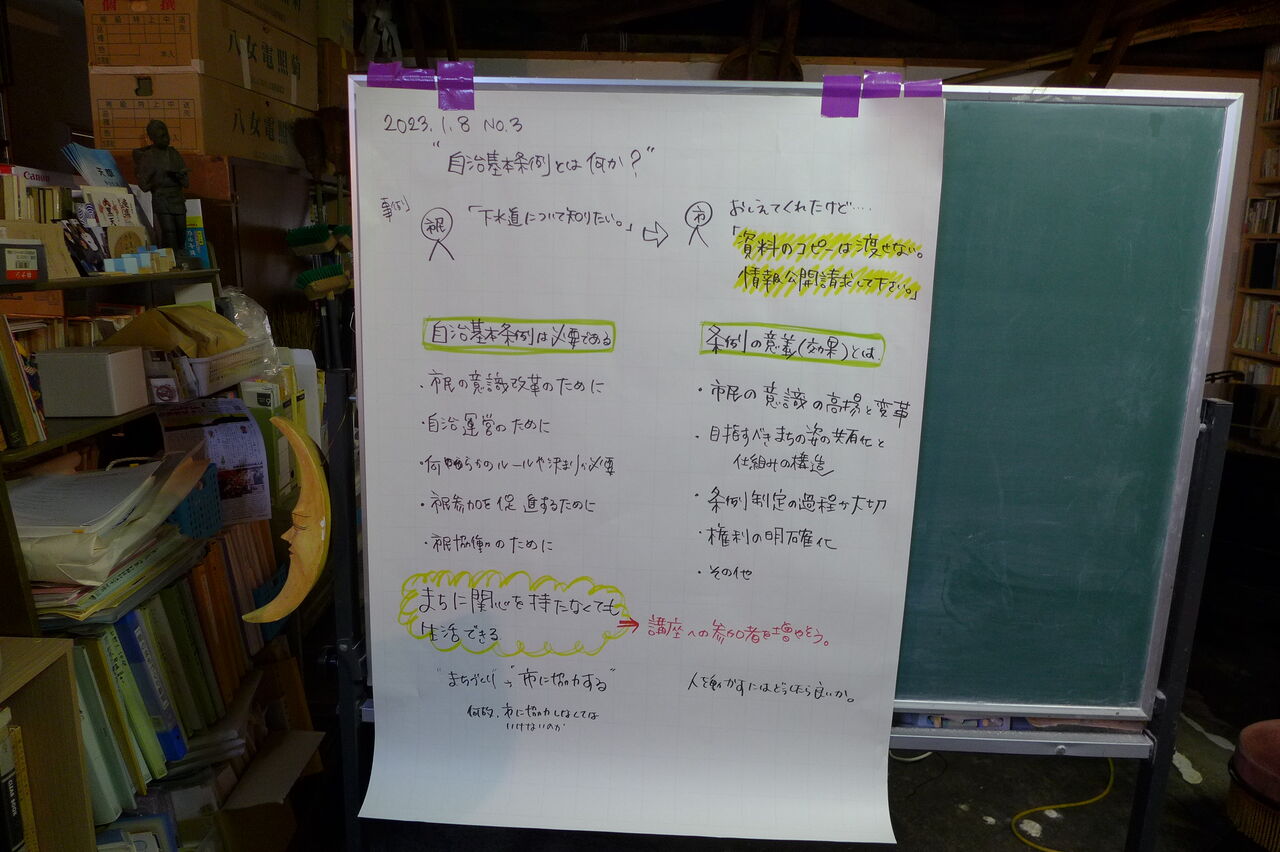 個撰
等級特上中送
八女電照菊
等級特上中送
八女電照菊
Canon
2023.1.8 NO.3
"自治基本条例とは何か?"
事例
市民
「下水道について知りたい。」
⇨
市
おしえてくれたけど‥‥
「資料のコピーは渡せない。
情報公開請求して下さい。」
自治基本条例は必要である
・市民の意識改革のために
・自治運営のために
・何やらかのルールや決まりが必要
・市民参加を促進するために
・市民協働のために
まちに関心を持たなくても
生活できる
"まちづくり→市に協力する"
何故、市に協力しなくては
いけないのか
条例の意義(効果)とは、
・市民の意識の高揚と変革
・目指すべきまちの姿の共有化と
仕組みの構造
・条例制定の過程が大切
・権利の明確化
・その他
→講座への参加者を増やそう。
人を動かすにはどうしたら良いか。